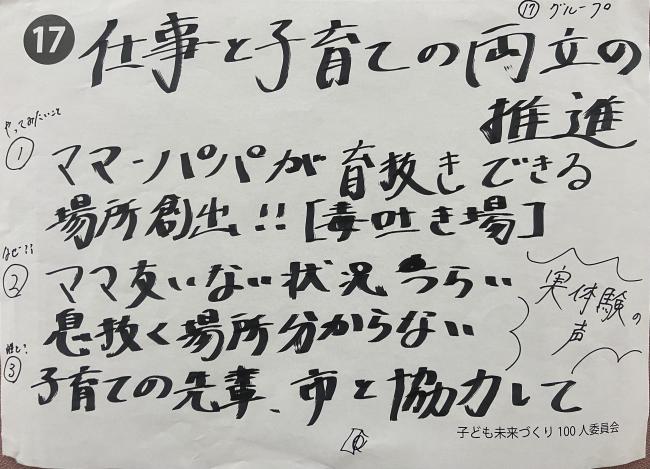 ⑰グループ
17 仕事と子育ての両立の
推進
やってみたいこと
① ママ-パパが育抜きできる
場所創出!![毒吐き場]
なぜ??
② ママ友いない状況つらい
息抜く場所分からない
実体験の
声
誰と?
③ 子育ての先輩、市と協力して
子ども未来づくり100人委員会